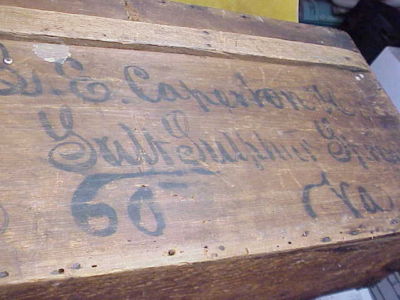 G. E. Caperton
Salt Sulphur Spr
60 Va